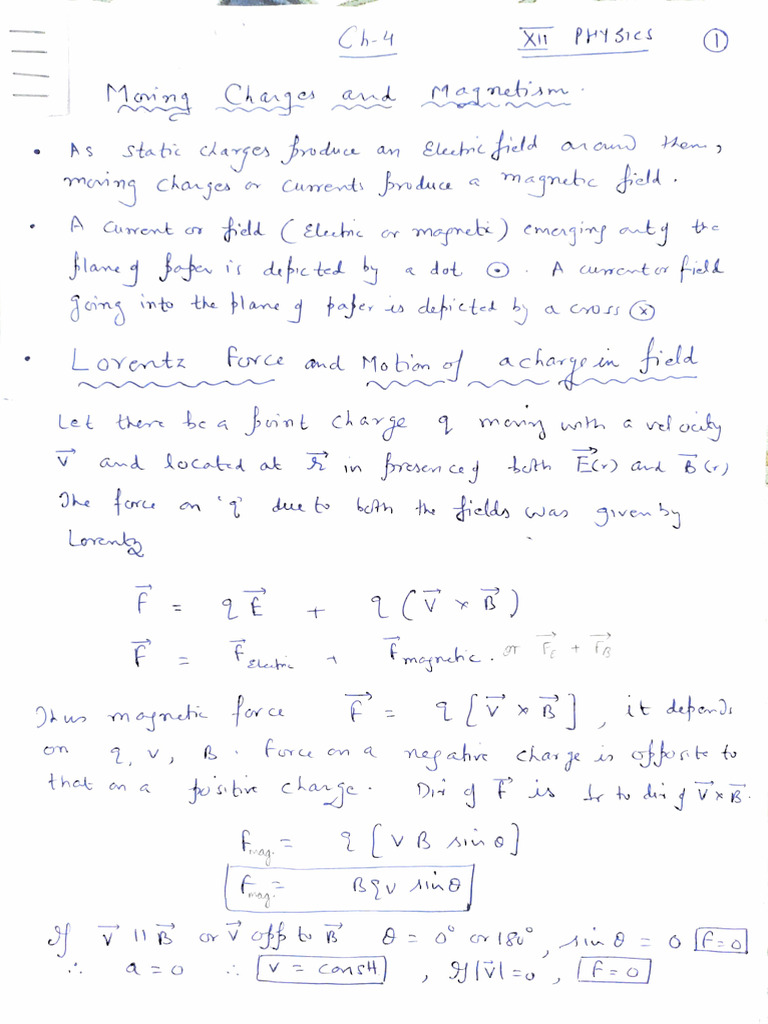 Ch-4 XII PHYSICS ①
Moving Charges and Magnetism.
• As static charges produce an Electric field around them,
moving charges or currents produce a magnetic field.
• A current or field (Electric or magnetic) emerging out of the
plane of paper is depicted by a dot ⊙. A current or field
going into the plane of paper is depicted by a cross ⊗
• Lorentz Force and Motion of a charge in field
Let there be a point charge q moving with a velocity
v⃗ and located at r⃗ in presence of both E⃗(r) and B⃗(r)
The force on 'q' due to both the fields was given by
Lorentz
F⃗ = qE⃗ + q(v⃗ × B⃗)
F⃗ = F⃗Electric + F⃗magnetic. or F⃗E + F⃗B
Thus magnetic force F⃗ = q[v⃗ × B⃗], it depends
on q, v, B. Force on a negative charge is opposite to
that on a positive charge. Dir of F⃗ is ⊥r to dir of v⃗×B⃗.
Fmag. = q[vB sinθ]
Fmag. = Bqv sinθ
If v⃗ || B⃗ or v⃗ opp to B⃗ θ = 0° or 180°, sinθ = 0 F=0
∴ a=0 ∴ v = constt, If |v⃗|=0, F=0